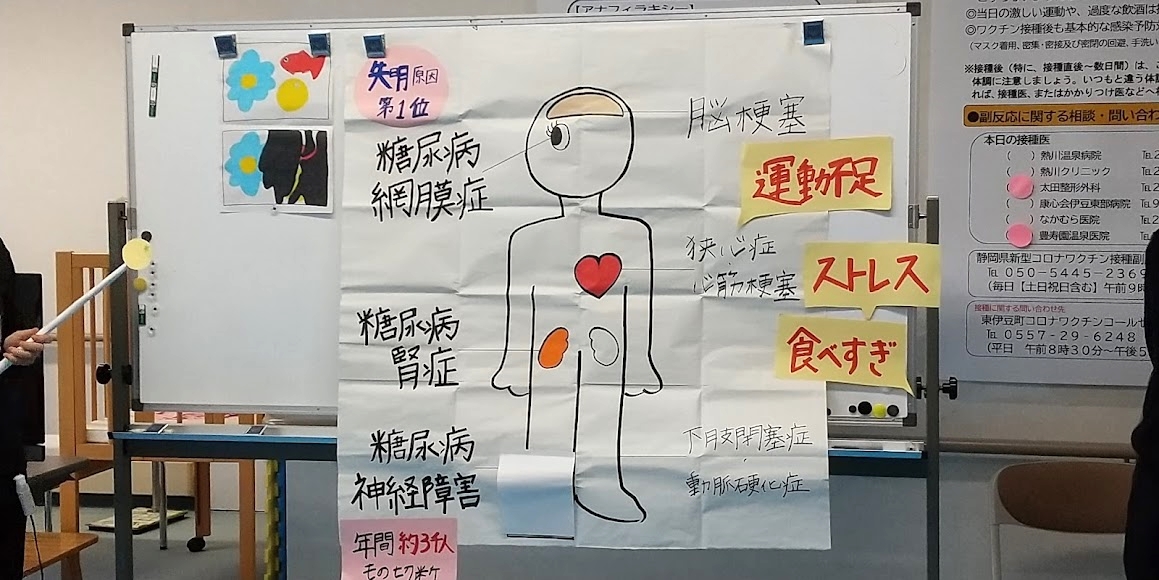 【アナフィラキシー】
◎当日の激しい運動や、過度な飲酒は
◎ワクチン接種後も基本的な感染予防
(マスク着用、密集・密接及び密閉の回避、手洗い
※接種後(特に、接種直後~数日間)は、
体調に注意しましょう。いつもと違う体調
れば、接種医、またはかかりつけ医などへ
●副反応に関する相談・問い合わ
本日の接種医
( ) 熱川温泉病院
( ) 熱川クリニック
( ) 太田整形外科
( ) 康心会伊豆東部病院
( ) なかむら医院
( ) 豊寿園温泉医院
静岡県新型コロナワクチン接種副
TEL 050-5445-2369
(毎日【土日祝日含む】午前9時
接種に関する問い合わせ先
東伊豆町コロナワクチンコールセ
TEL 0557-29-6248
(平日 午前8時30分~午後5
失明原因
第1位
糖尿病
網膜症
糖尿病
腎症
糖尿病
神経障害
年間約3千人
脳梗塞
運動不足
狭心症
心筋梗塞
ストレス
食べすぎ
下肢閉塞症
動脈硬化症